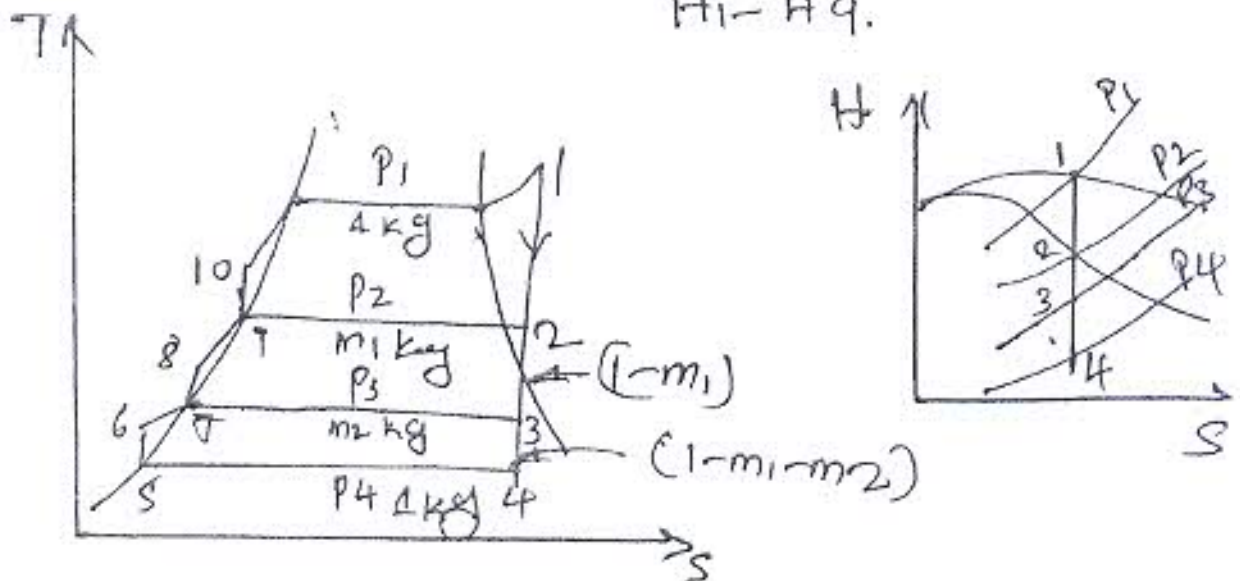 H1- H9.
T
P1
1 kg
1
10
P2
m1 kg
2
8
(1-m1)
P3
m2 kg
3
6
7
(1-m1-m2)
5
P4 1kg
4
S
H
P1
1
P2
P3
2
P4
3
4
S